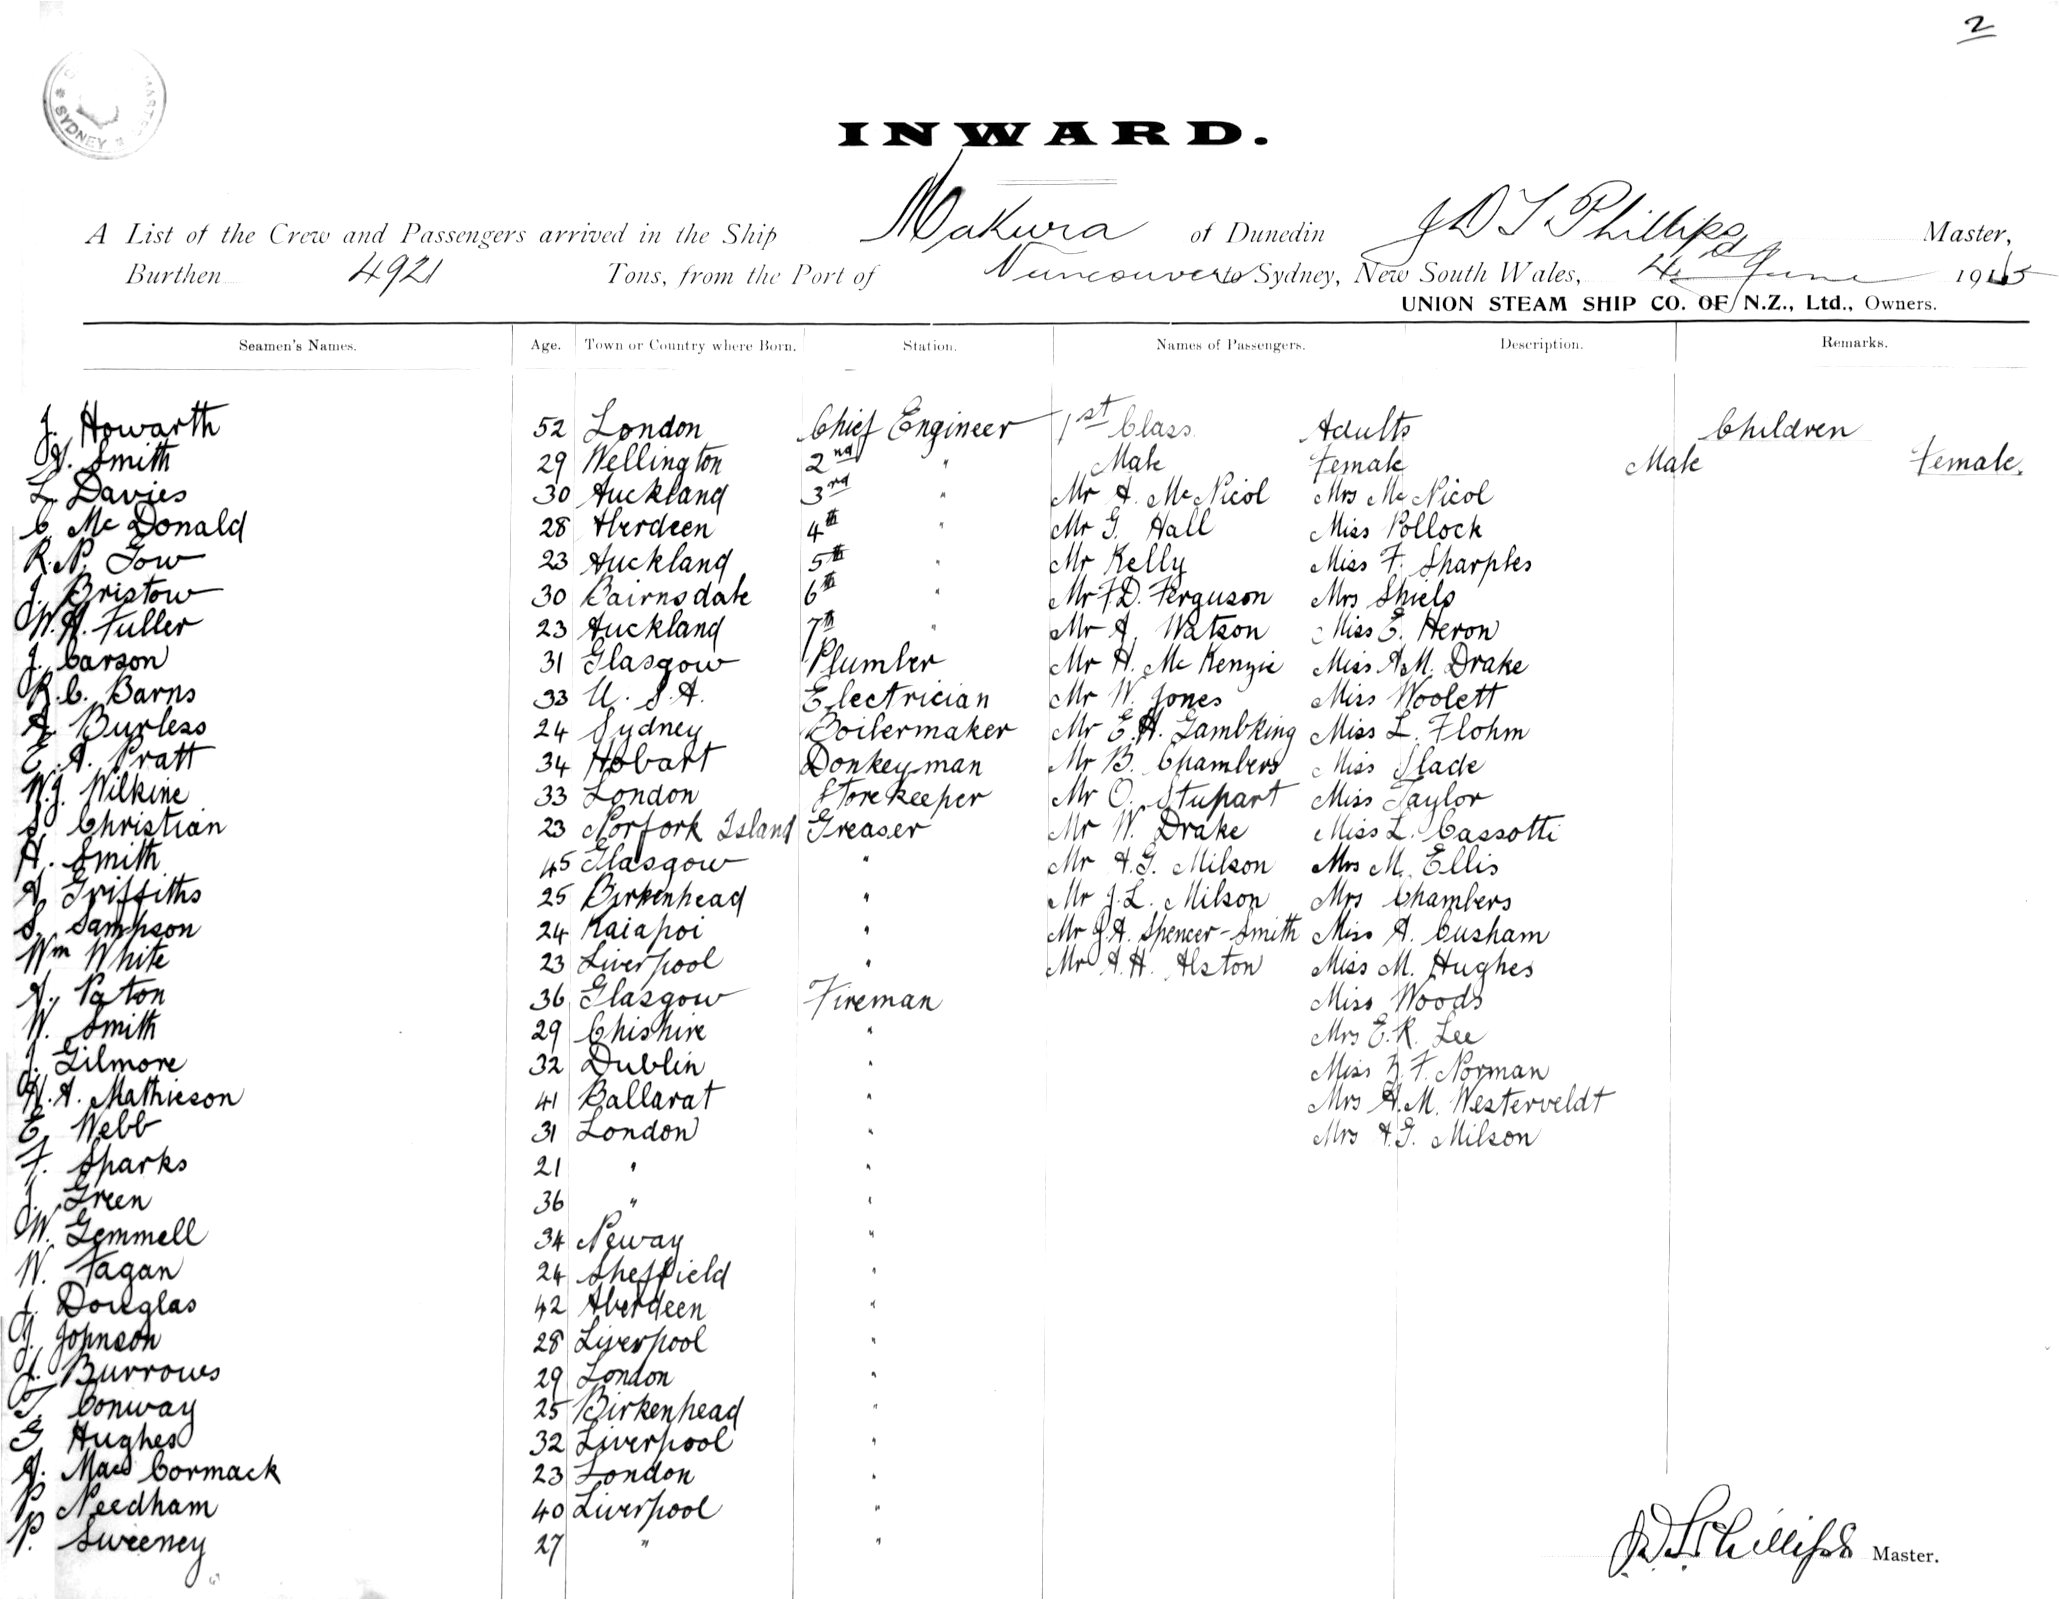 2
SYDNEY
INWARD.
A List of the Crew and Passengers arrived in the Ship Makura of Dunedin J D S Phillips Master,
Burthen 4921 Tons, from the Port of Vancouver to Sydney, New South Wales, 4 June 1915
UNION STEAM SHIP CO. OF N.Z., Ltd., Owners.
Seamen's Names. Age. Town or Country where Born. Station. Names of Passengers. Description. Remarks.
J. Howarth 52 London Chief Engineer 1st Class Adults Children
A. Smith 29 Wellington 2nd " Male Female Male Female
L. Davies 30 Auckland 3rd " Mr A. McNicol Mrs McNicol
C. McDonald 28 Aberdeen 4th " Mr G. Hall Miss Pollock
R.N. Gow 23 Auckland 5th " Mr Kelly Miss F. Sharples
J. Bristow 30 Bairnsdale 6th " Mr F.D. Ferguson Mrs Shiels
W.H. Fuller 23 Auckland 7th " Mr A. Watson Miss E. Heron
J. Carson 31 Glasgow Plumber Mr H. McKenzie Miss A.M. Drake
R.C. Barns 33 U.S.A. Electrician Mr W. Jones Miss Woolett
A. Burless 24 Sydney Boilermaker Mr E.H. Gambking Miss L. Flohm
E.A. Pratt 34 Hobart Donkeyman Mr B. Chambers Miss Slade
W.J. Wilkine 33 London Storekeeper Mr O. Stupart Miss Taylor
S. Christian 23 Norfork Island Greaser Mr W. Drake Miss L. Cassotti
H. Smith 45 Glasgow " Mr A.G. Milson Mrs M. Ellis
A. Griffiths 25 Birkenhead " Mr J.L. Milson Mrs Chambers
S. Sampson 24 Kaiapoi " Mr J.A. Spencer-Smith Miss A. Cusham
Wm White 23 Liverpool " Mr A.H. Alston Miss M. Hughes
A. Paton 36 Glasgow Fireman Miss Woods
W. Smith 29 Chishire " Mrs E.R. Lee
J. Gilmore 32 Dublin " Miss F. Norman
H.A. Mathieson 41 Ballarat " Mrs A.M. Westerveldt
E. Webb 31 London " Mrs A.G. Milson
F. Sparks 21 " "
J. Green 36 " "
W. Gemmell 34 Neway "
W. Fagan 24 Sheffield "
J. Douglas 42 Aberdeen "
J. Johnson 28 Liverpool "
J. Burrows 29 London "
T. Conway 25 Birkenhead "
G Hughes 32 Liverpool "
A. MacCormack 23 London "
P. Needham 40 Liverpool "
P. Sweeney 27 " "
J D S Phillips Master.